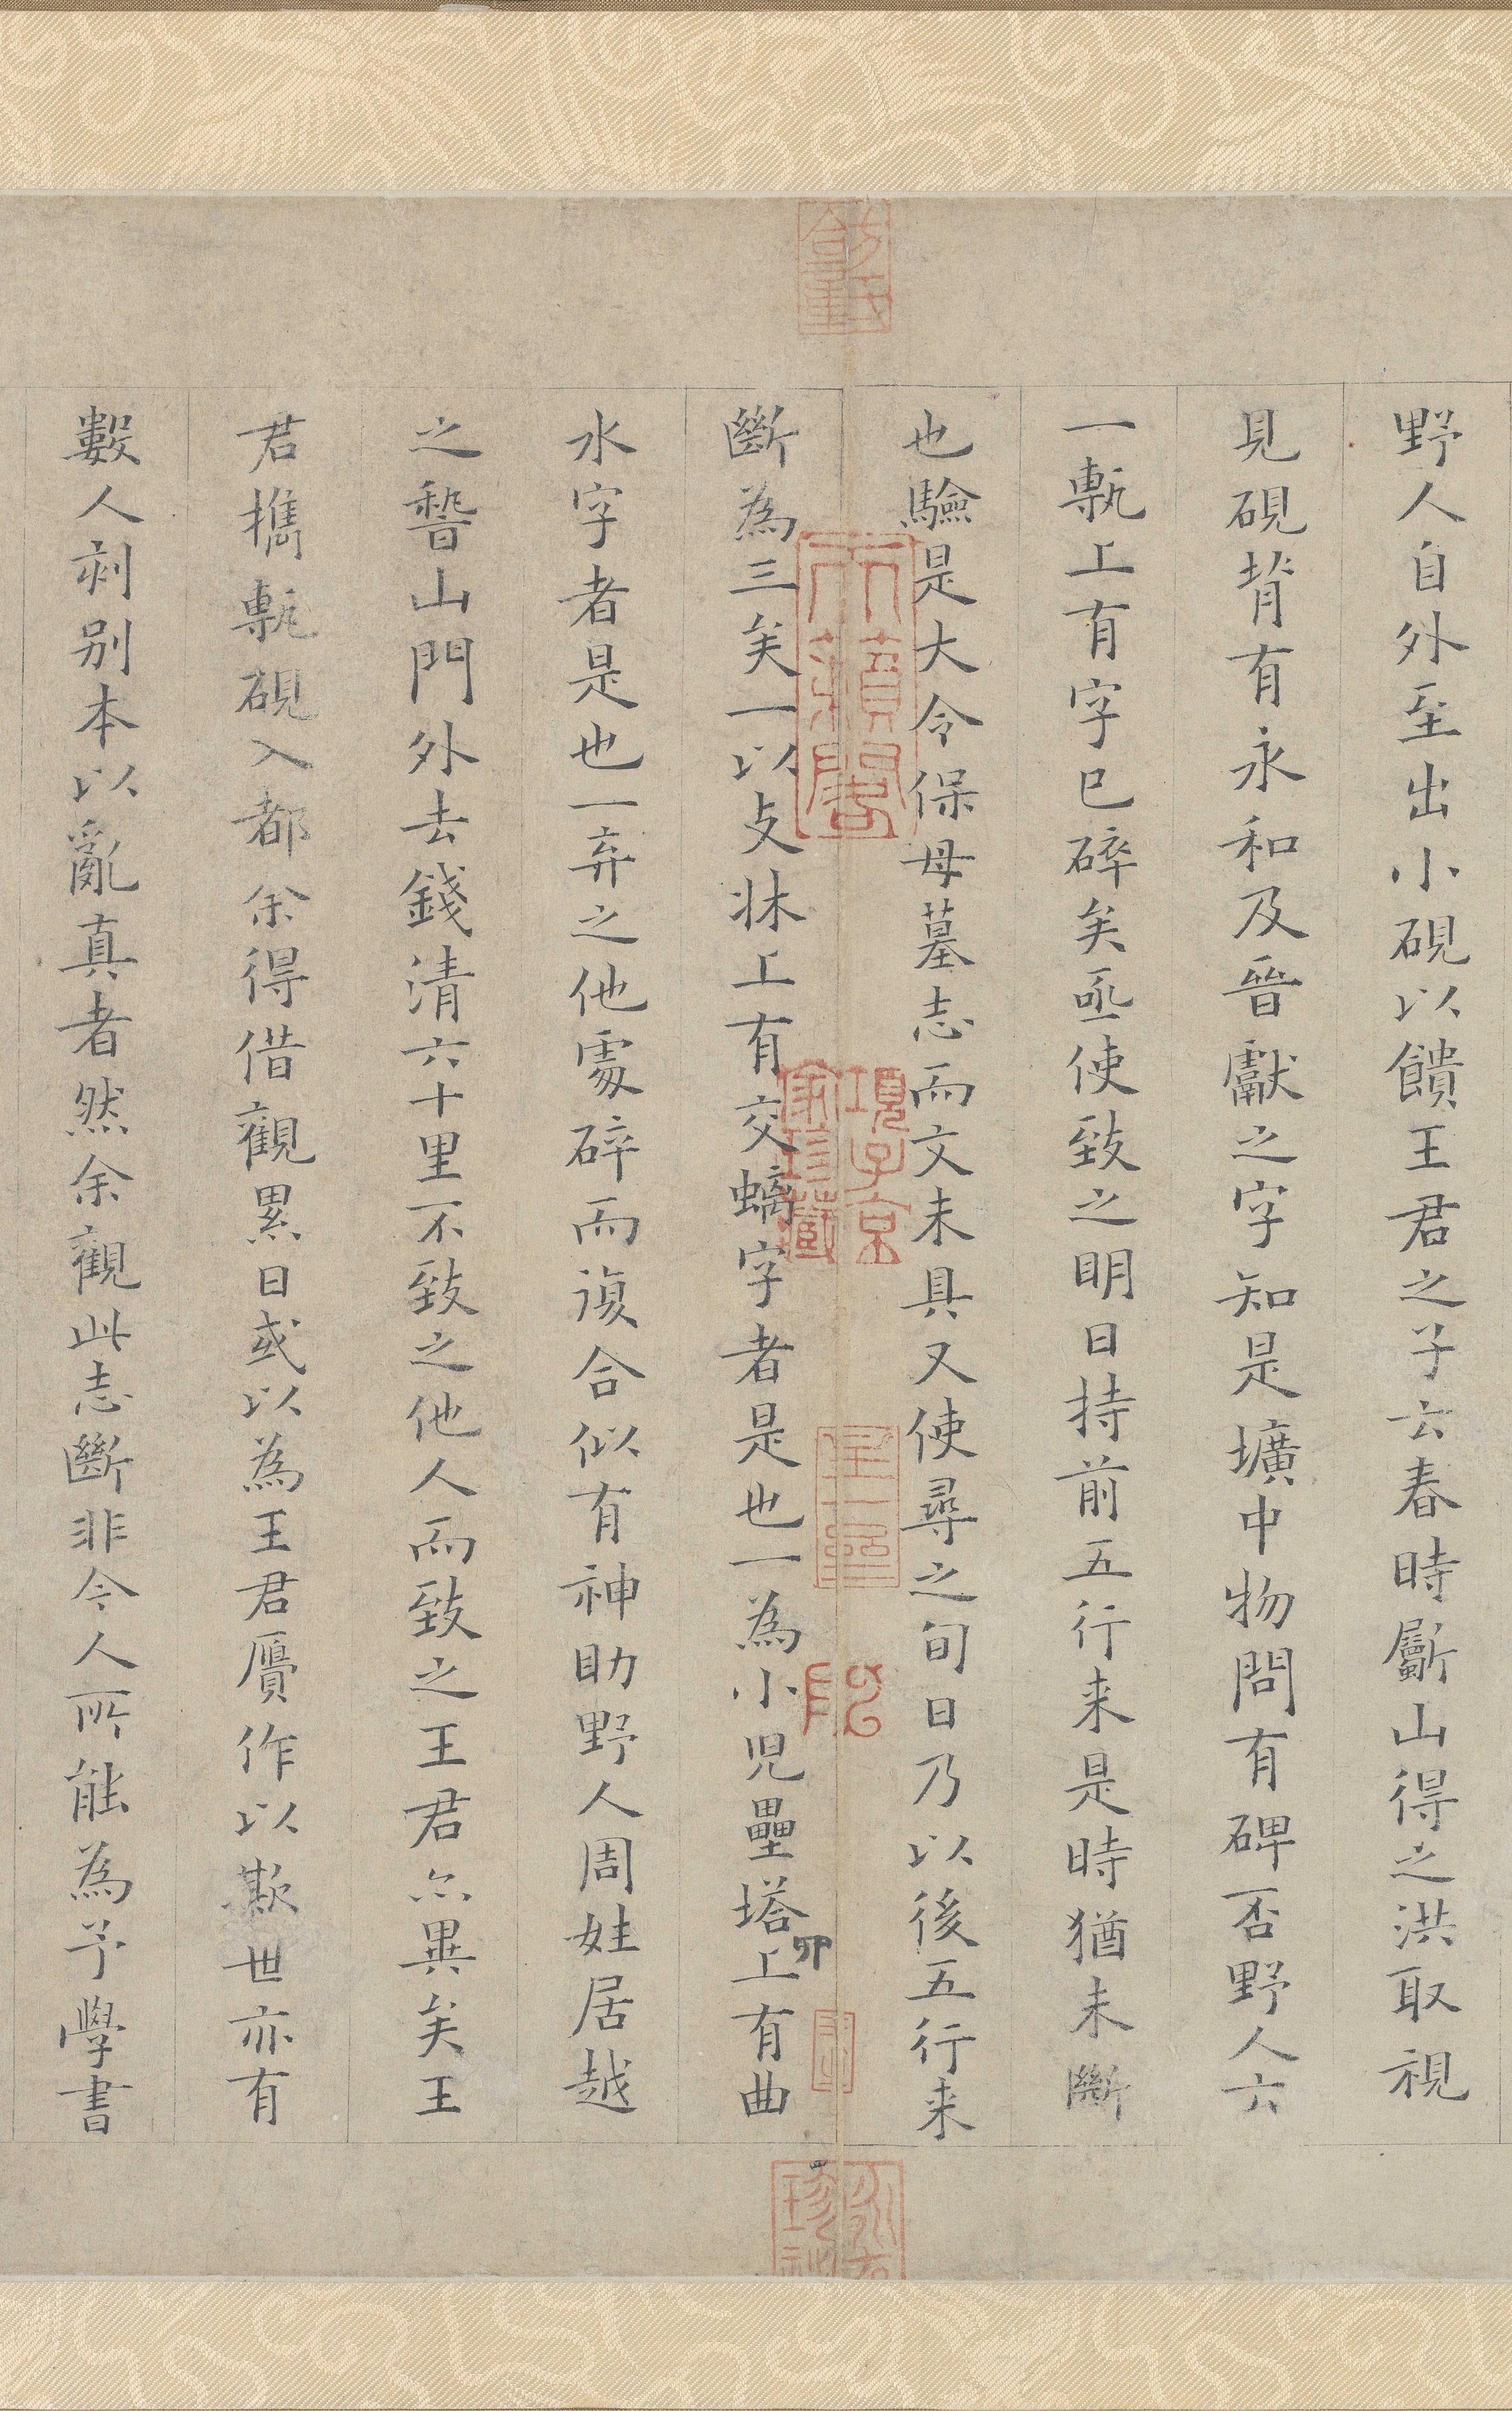 野人自外至出小硯以饋王君之子云春時斸山得之洪取視
見硯背有永和及晉獻之字知是壙中物問有碑否野人云
一甎上有字已碎矣亟使致之明日持前五行来是時猶未斷
也驗是大令保母墓志而文未具又使尋之旬日乃以後五行来
斷為三矣一以支牀上有交螭字者是也一為小児壘塔上有曲
水字者是也一弃之他處碎而復合似有神助野人周姓居越
之稽山門外去錢清六十里不致之他人而致之王君亦異矣王
君攜甎硯入都余得借觀累日或以為王君贋作以欺世亦有
數人刻別本以亂真者然余觀此志斷非今人所能為予學書
天籟閣
項子京家珍藏
卯